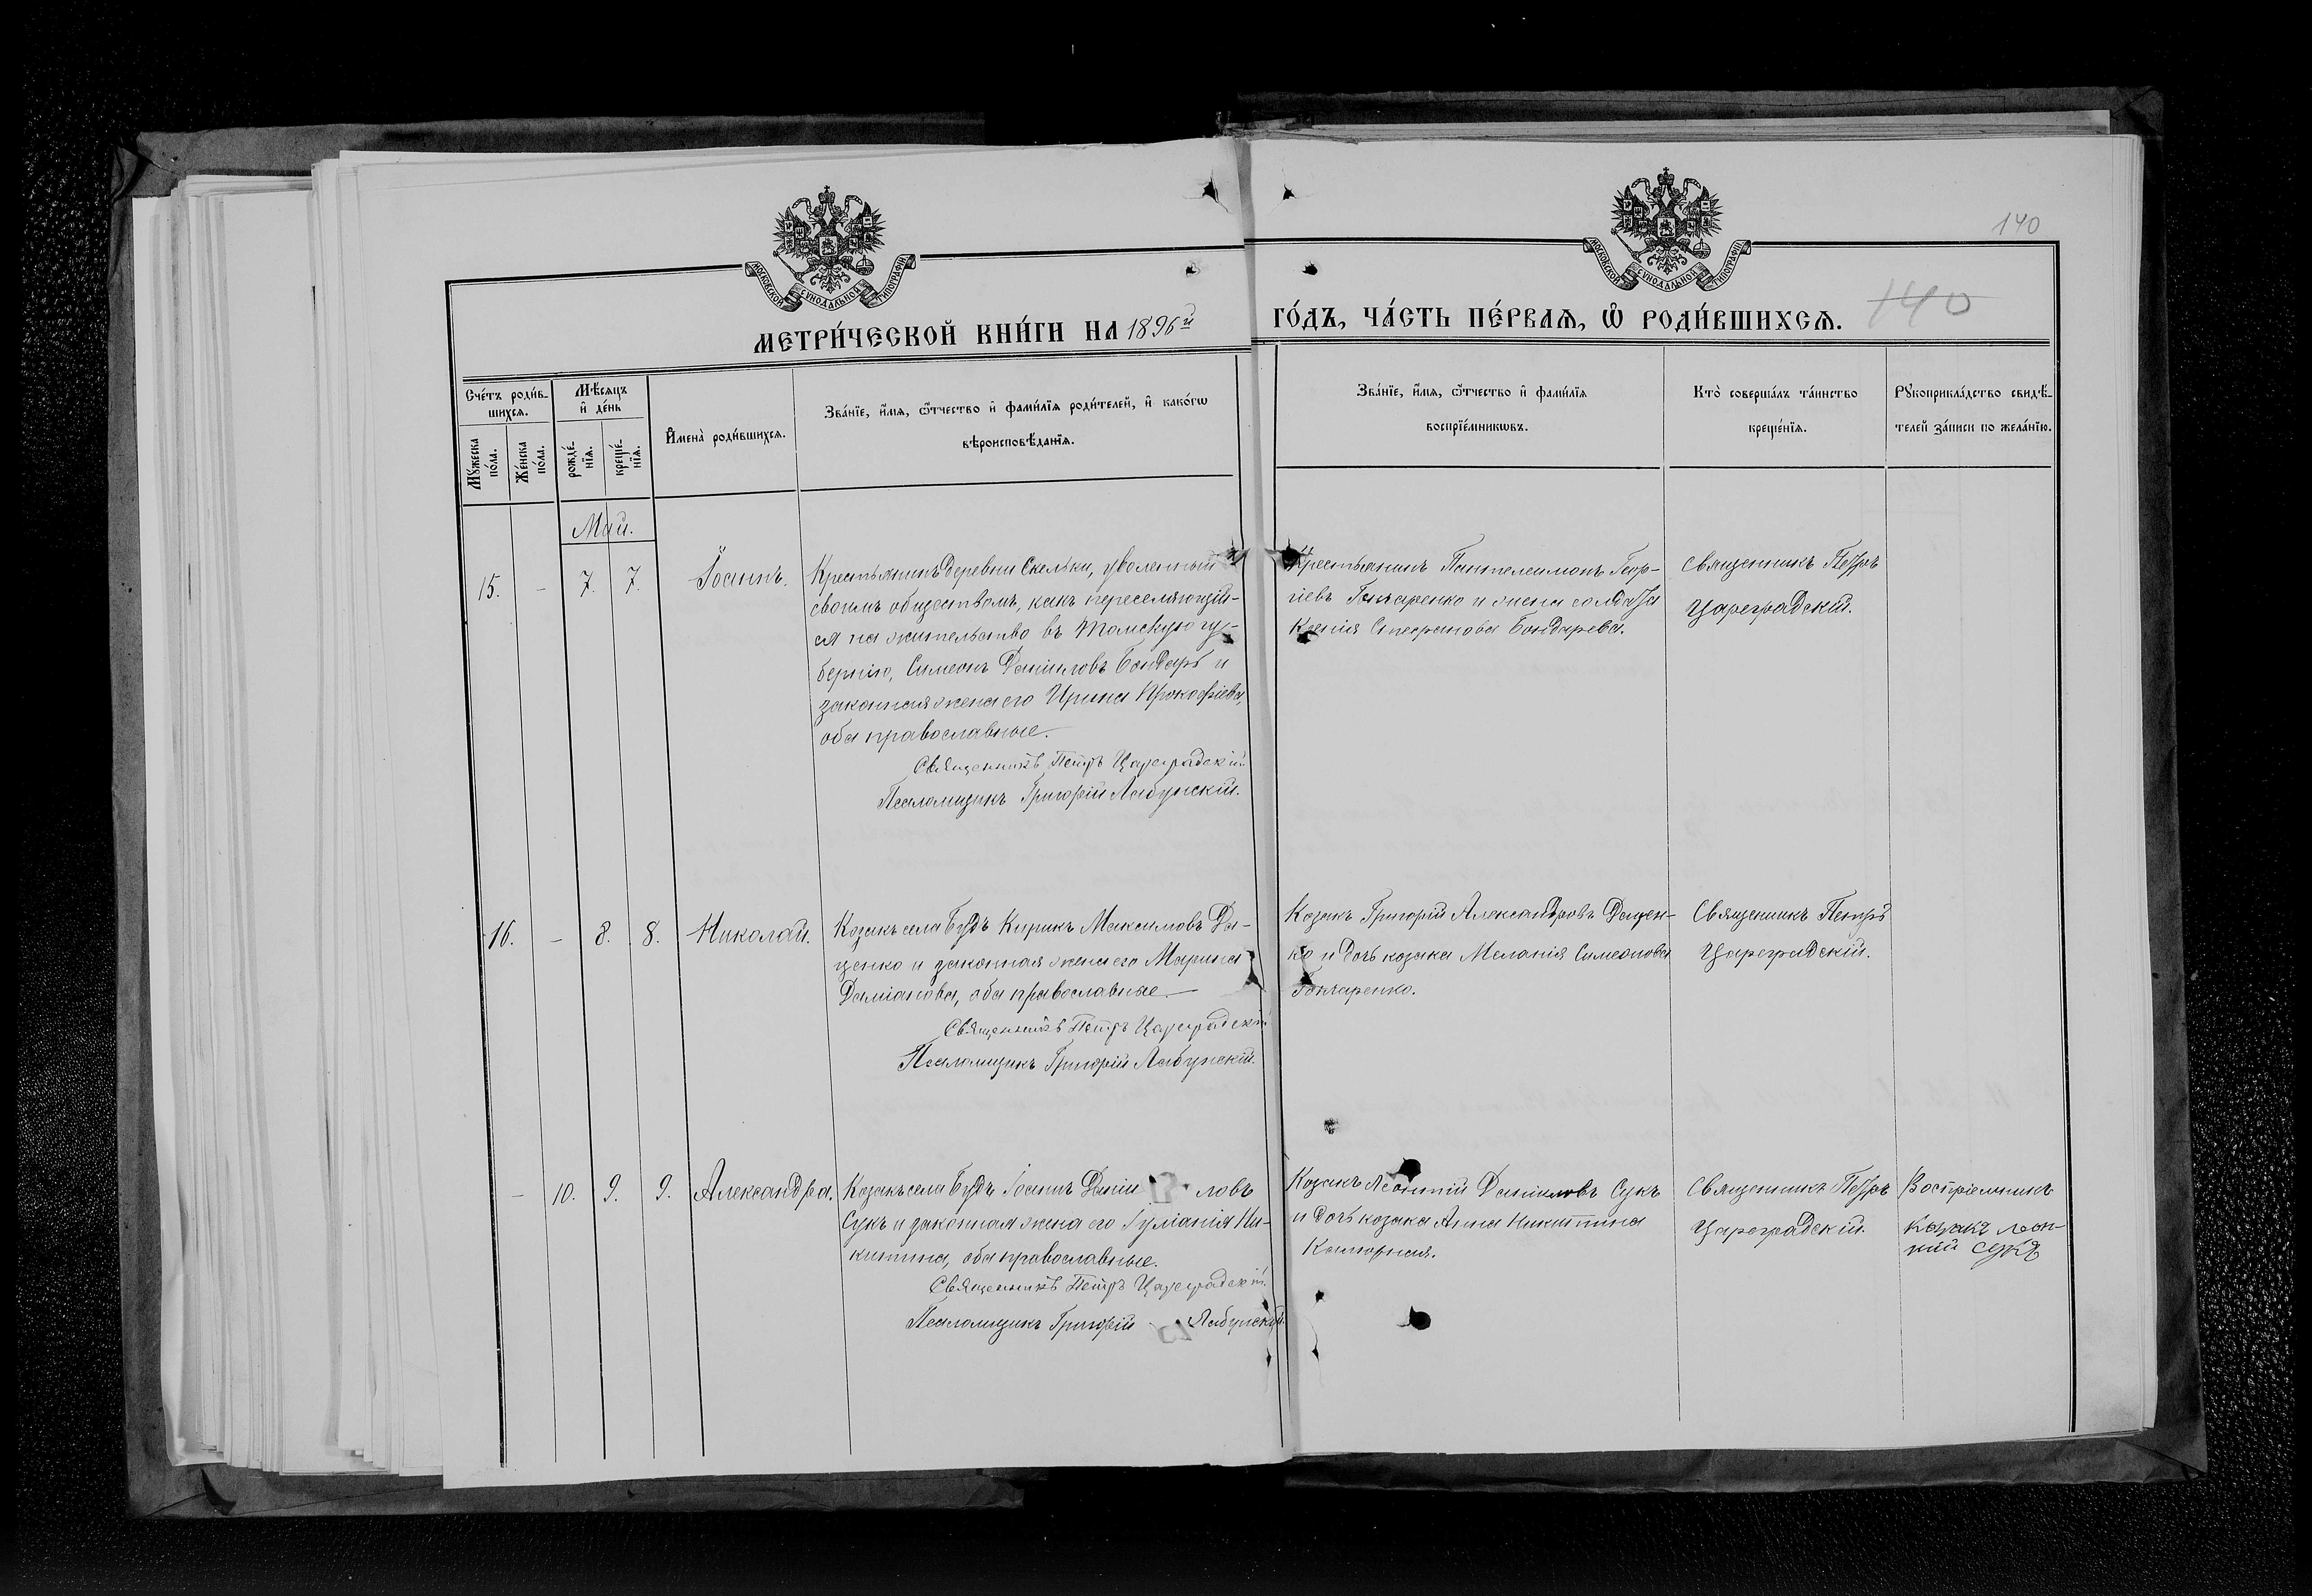 140
МОСКОВСКОЙ СУНОДАЛЬНОЙ ТИПОГРАФІИ
МОСКОВСКОЙ СУНОДАЛЬНОЙ ТИПОГРАФІИ
140
МЕТРИ́ЧЕСКОЙ КНИ́ГИ НА 1896й
ГО́ДЪ, ЧА́СТЬ ПЕ́РВАѦ, Ѡ РОДИ́ВШИХСѦ.
Сче́тъ роди́в-
шихсѧ.
Мѣ́сѧцъ
и҆ де́нь
Мꙋ́жеска
по́ла.
Же́нска
по́ла.
рожде́-
нїѧ.
креще́-
нїѧ.
И҆мена̀ роди́вшихсѧ.
Зва́нїе, и҆́мѧ, ѻ҆́тчество и҆ фами́лїѧ роди́телей, и҆ како́гѡ
вѣроисповѣ́данїѧ.
Зва́нїе, и҆́мѧ, ѻ҆́тчество и҆ фами́лїѧ
воспрїе́мникѡвъ.
Кто̀ соверша́лъ та́инство
креще́нїѧ.
Рꙋкоприкла́дство свидѣ́-
телей за́писи по жела́нїю.
Май.
15.
-
7.
7.
Іоаннъ.
Крестьянинъ деревни Скельки, уволенный
своимъ обществомъ, какъ переселяющій-
ся на жительство въ Томскую гу-
бернію, Симеонъ Даніиловъ Бондарь и
законная жена его Ирина Прокофіева,
оба православные.
Священникъ Петръ Цареградскій
Псаломщикъ Григорій Лабунскій.
Крестьянинъ Пантелеимонъ Геор-
гіевъ Гончаренко и жена солдата
Ксенія Стефанова Бондарева.
Священникъ Петръ
Цареградскій.
16.
-
8.
8.
Николай.
Козакъ села Будъ Кирикъ Максимовъ Да-
ценко и законная жена его Марина
Даміанова, оба православные.
Священникъ Петръ Цареградскій
Псаломщикъ Григорій Лабунскій.
Козакъ Григорій Александровъ Дацен-
ко и дочь козака Меланія Симеонова
Гончаренко.
Священникъ Петръ
Цареградскій.
-
10.
9.
9.
Александра.
Козакъ села Будъ Іоаннъ Даніи ловъ
Сукъ и законная жена его Іуліанія Ни-
китина, оба православные.
Священникъ Петръ Цареградскій.
Псаломщикъ Григорій Лабунскій.
Козакъ Леонтій Даніиловъ Сукъ
и дочь козака Анна Никитина
Священникъ Петръ
Цареградскій.
Воспріемникъ
Козакъ Леон-
тій Сукъ